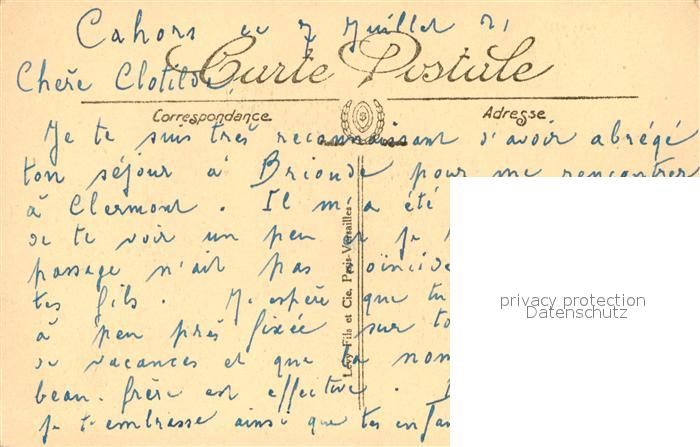 Cahors le 7 Juillet 21
Carte Postale
Chère Clotilde,
Correspondance
Adresse
Je te suis très reconnaissant d'avoir abrégé
ton séjour à Brioude pour me rencontrer
à Clermont. Il m'a été
de te voir un peu et je
passage n'ait pas coïncidé
tes fils. J'espère que tu
à peu près fixée sur to
de vacances et que la nom
beau-frère est effective.
Je t'embrasse ainsi que tes enfan
Lévy Fils et Cie, Paris-Versailles
privacy protection
Datenschutz